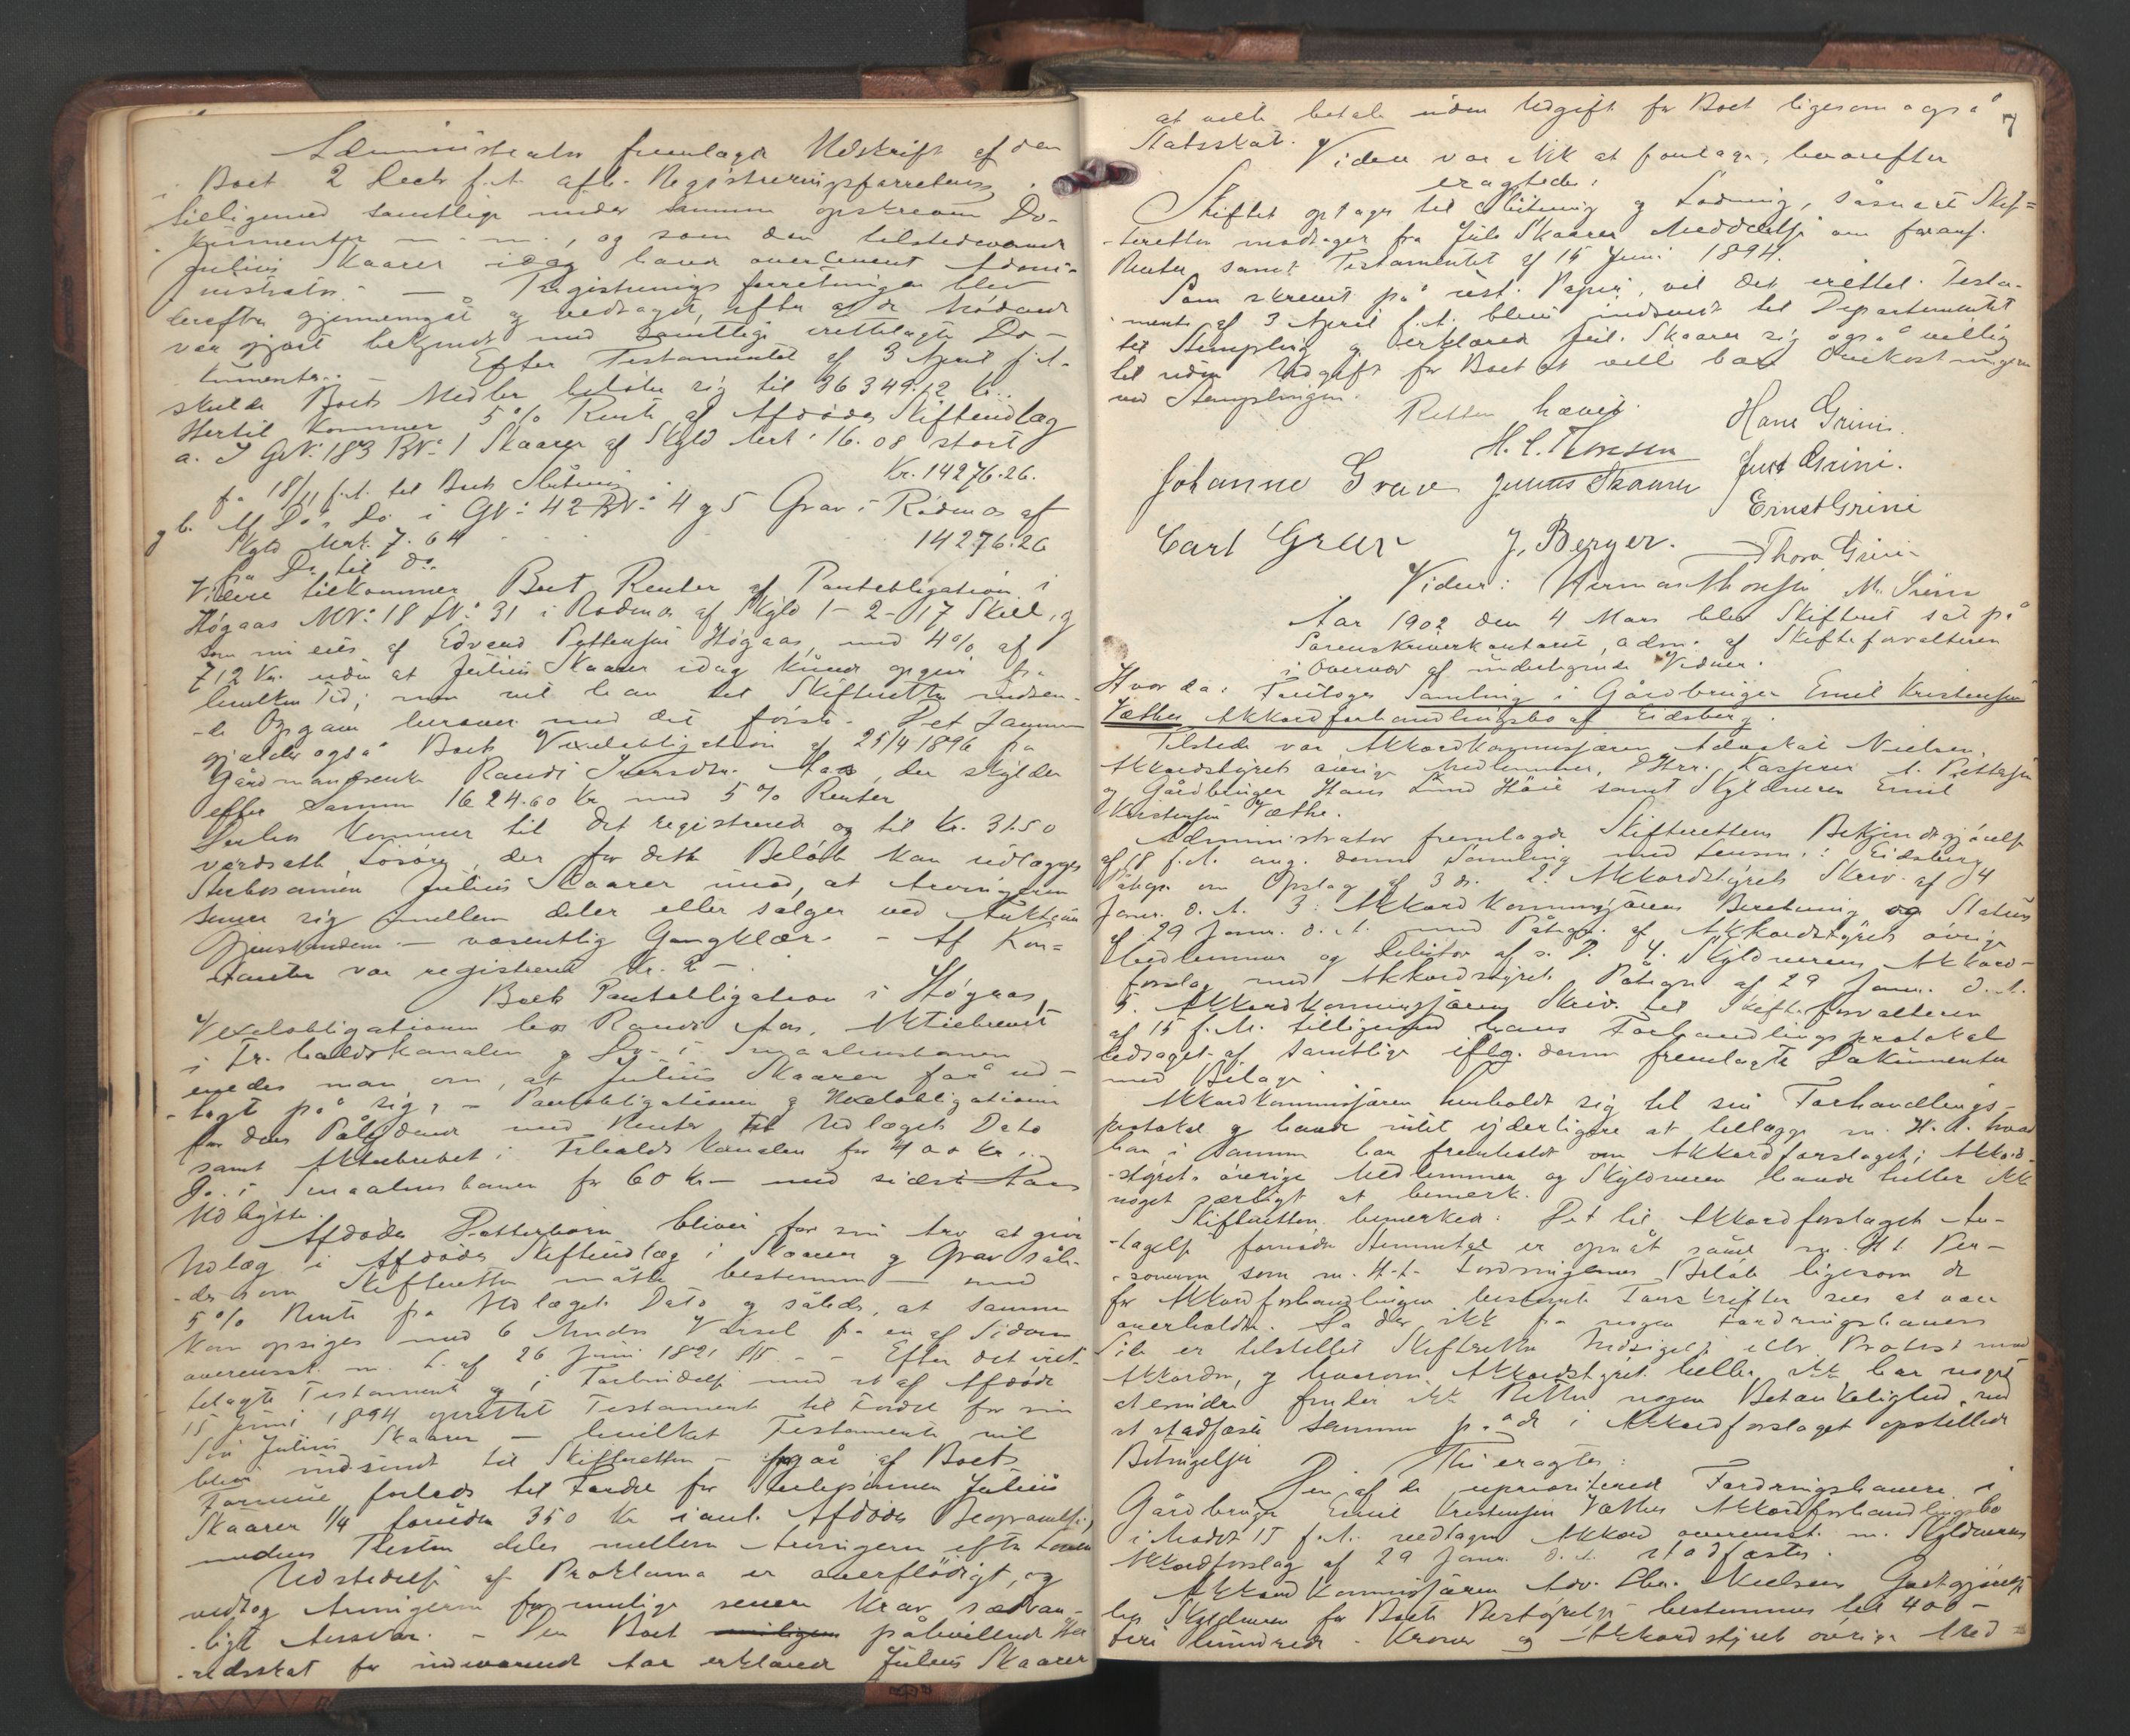 Administrator fremlagde Udskrift af den
i Boet 2 Decbr f.A. afh. Registreringsforretning
tilligemed samtlige under samme opskrevne Do-
kumenter – . – m., og som den tilstedeværende
Julius Skaarer idag havde overleveret Admi-
nistrator. — Registreringsforretningen blev
derefter gjennemgåt og vedtaget, efter at de Mødende
var gjort bekjendt med samtlige irettelagte Do-
kumenter. – Efter Testamentet af 3 April f.A.
skulde Boets Midler beløbe sig til 36349.12 kr.
Hertil kommer 5% Rente af Afdødes Skifteudlæg
a. I GNo 183 BNo 1 Skaarer af Skyld Mrk. 16.08 stort
Kr. 14276.26.
fra 18/11 f.A. til Boets Slutning
og b. Af Do's Do i GNo 42 BNo 4 og 5 Grav i Rødenes af
Skyld Mrk. 7.64 . . . . 14276.26
fra Do til Do.
Videre tilkommer Boet Renter af Panteobligation i
Høgaas MNo 18 LNo 31 i Rødenes af Skyld 1-2-17 Skill, og
som nu eies af Edvard Pettersen Høgaas, med 4% af
712 Kr. uden at Julius Skaarer idag kunde opgive fra
hvilken Tid; men vil han til Skifteretten indsen-
de Opgave herover med det første. Det samme
gjælder også Boets Vexelobligation af 25/4 1896 fra
Gårdmandsenke Randi Iversdtr. Aas, der skylder
efter samme 1624.60 Kr med 5% Renter
Derhos kommer til det registrerede og til Kr. 31.50
værdsatte Løsøre, der for dette Beløb kan udlægges
Sterbosønnen Julius Skaarer imod, at Arvingerne
senere sig imellem deler eller sælger ved Auktion
Gjenstandene. — væsentlig Gangklær. – Af Kon-
tanter var registreret Kr. 2 –.
Boets Panteobligation i Høgaas,
Vexelobligationen hos Randi Aas, Aktiebrevet
i Fr.haldskanalen og Do. i Smaalensbanen
enedes man om, at Julius Skaarer får ud-
-lagt på sig, – Panteobligationen og Vexelobligationen
for dens Pålydende med Renter til Udlægets Dato
samt Aktiebrevet i Fr.haldskanalen for 400 kr.
Do. i Smaalensbanen for 60 Kr – med sidste Aars
Udbytte.
Afdødes Datterbørn bliver for sin Arv at give
Udlæg i Afdødes Skifteudlæg i Skaarer og Grav såle-
-des som Skifteretten måtte bestemme — med
5% Rente fra Udlægets Dato og således, at samme
kan opsiges med 6 Mndrs Varsel fra en af Siderne
overensst. m. L. af 26 Juni 1821 § 15. – – Efter det iret-
telagte Testament og i Forbindelse med et af Afdøde
15 Juni 1894 oprettet Testament til Fordel for sin
Søn Julius Skaarer — hvilket Testament vil
blive indsendt til Skifteretten – fragår af Boets
Formue forlods til Fordel for Sterbosønnen Julius
Skaarer 1/4 foruden 350 Kr i anl. Afdødes Begravelse,
medens Resten deles mellem Arvingerne efter Loven
Udstedelse af Proklama er overflødigt, og
vedtog Arvingerne for mulige senere Krav sædvan-
-ligt Ansvar. – Den Boet påhvilende Her
-redsskat for indeværende Aar erklærede Julius Skaarer
7
at ville betale uden Udgift for Boet ligesom også
Statsskat.
Videre var ikke at foretage, hvorefter
eragtedes:
Skiftet optages til Slutning og Lodning, såsnart Skif-
-teretten modtager fra Jul. Skaarer Meddelelse om foranf.
Renter samt Testamentet af 15 Juni 1894.
Som skrevet på ust. Papir, vil det irettel. Testa-
mente af 3 April f.A. blive indsendt til Departementet
til Stempling og erklærede Jul. Skaarer sig også villig
til uden Udgift for Boet at ville bære Omkostningerne
ved Stemplingen.
Retten hævet.
H. C. Thomsen Hans Grini.
Johanne Grav Julius Skaarer Just Grini.
Ernst Grini
Carl Grav J. Berger. Thora Grini
Vidner: Herman Thoresen M. Grini
Aar 1902 den 4 Mars blev Skifteret sat på
Sorenskriverkontoret, adm. af Skifteforvalteren
i Overvær af undertegnede Vidner.
Hvor da: Foretoges Samling i Gårdbruger Emil Kristensen
Væthes Akkordforhandlingsbo af Eidsberg.
Tilstede var Akkordkommissæren Advokat Nielsen,
Akkordstyrets øvrige Medlemmer, DHrr. Kasserer A. Pettersen
og Gårdbruger Hans Lund Høie samt Skyldneren Emil
Kristensen Væthe.
Administrator fremlagde Skifterettens Bekjendtgjørelse
af 18 f.M. ang. denne Samling med Lensm. i Eidsberg
Påtegn. om Opslag af 3 ds. 2: Akkordstyrets Skriv. af 24
Janr. d.A. 3: Akkordkommissærens Beretning og Status
af 29 Janr. d.A. med Påtegn. af Akkordstyrets øvrige
Medlemmer og Debitor af s. D. 4. Skyldnerens Akkord-
forslag med Akkordstyrets Påtegn. af 29 Janr. d.A.
5. Akkordkommissærens Skriv. til Skifteforvalteren
af 15 f.M. tilligemed hans Forhandlingsprotokol
ledsaget af samtlige iflg. denne fremlagte Dokumenter
med Bilage
Akkordkommissæren henholdt sig til sin Forhandlings-
protokol og havde intet yderligere at tillægge m. H. t. hvad
han i samme har fremholdt om Akkordforslaget; Akkord-
-styrets øvrige Medlemmer og Skyldneren havde heller ikke
noget særligt at bemerke.
Skifteretten bemerker: Det til Akkordforslagets An-
-tagelse fornødne Stemmetal er opnåt såvel m. H. t. Per-
-sonerne som m. H. t. Fordringernes Beløb ligesom de
for Akkordforhandlingen bestemte Forskrifter sees at være
overholdte. Da der ikke fra nogen Fordringshavers
Side er tilstillet Skifteretten Indsigelse eller Protest mod
Akkorden, og hvorom Akkordstyret heller ikke har noget
at erindre finder ikke Retten nogen Betænkelighed ved
at stadfæste samme på de i Akkordforslaget opstillede
Betingelser
Thi eragtes:
Den af de uprioriterede Fordringshavere i
Gårdbruger Emil Kristensen Væthes Akkordforhandlingsbo
i Mødet 15 f.M. vedtagne Akkord overensst. m. Skyldnerens
Akkordforslag af 29 Janr. d.A. stadfæstes.
Akkordkommissæren Adv. Chr. Nielsens Godtgjørelse
hos Skyldneren for Boets Bestyrelse bestemmes til 400 –
fire hundrede – Kroner og Akkordstyrets øvrige Med-